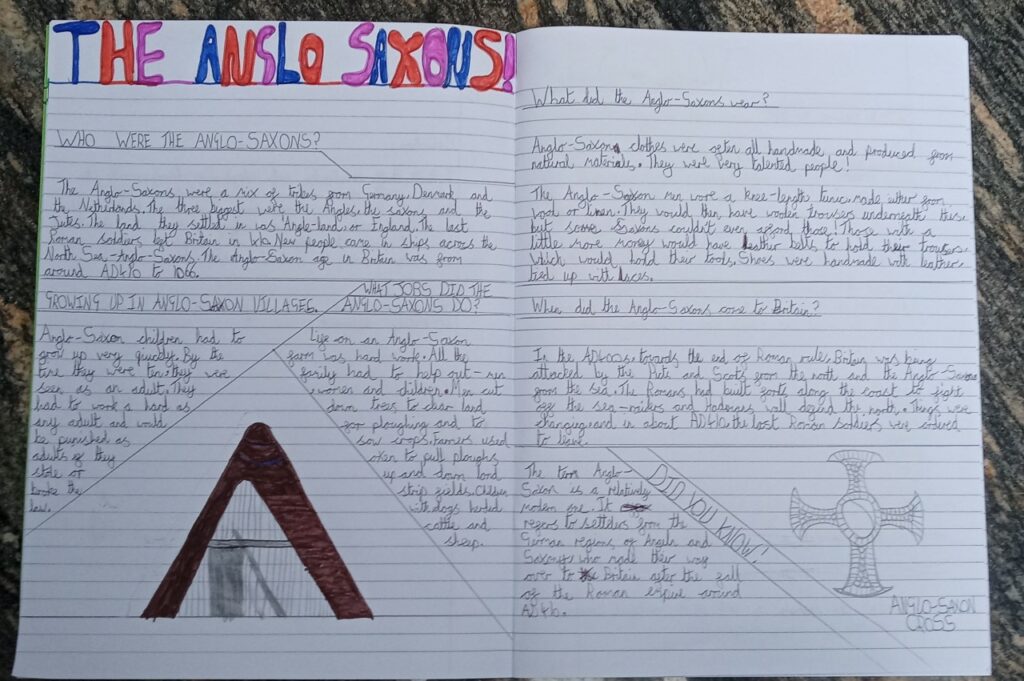 THE ANGLO SAXONS!
WHO WERE THE ANGLO-SAXONS?
The Anglo-Saxons were a mix of tribes from Germany, Denmark and
the Netherlands. The three biggest were the Angles, the saxons and the
Jutes. The land they settled in was 'Angle-land', or England. The last
Roman soldiers left Britain in 410. New people came in ships across the
North Sea-Anglo-Saxons. The Anglo-Saxon age in Britain was from
around AD410 to 1066.
GROWING UP IN ANGLO-SAXON VILLAGES.
Anglo-Saxon children had to
grow up very quickly. By the
time they were ten, they were
seen as an adult. They
had to work a hard as
any adult and would
be punished as
adults if they
stole or
broke the
law.
WHAT JOBS DID THE
ANGLO-SAXONS DO?
Life on an Anglo-Saxon
farm was hard work. All the
family had to help out- men
, women and children. Men cut
down trees to clear land
for ploughing and to
sow crops. Famers used
oxen to pull ploughs
up and down land
strip fields. Children
with dogs herded
cattle and
sheep.
What did the Anglo-Saxons wear?
Anglo-Saxon clothes were often all handmade and produced from
natural materials. They were very talented people!
The Anglo-Saxon men wore a knee-length tunic, made either from
wool or linen. They would then have woolen trousers underneath this,
but some saxons couldn't even afford those. Those with a
little more money would have leather belts to hold their trousers,
which would hold their tools. Shoes were handmade with leather,
tied up with laces.
When did the Anglo-Saxons come to Britain?
In the AD400s, towards the end of Roman rule, Britain was being
attacked by the Picts and Scots from the north and the Anglo-Saxons
from the sea. The Romans had built forts along the coast to fight
off the sea-raiders and Hadrians wall defend the north. Things were
changing and in about AD410, the last Roman soldiers were ordered
to leave.
The term Anglo-
Saxon is a relatively
modern one. It
refers to settlers from the
German regions of Angeln and
Saxony, who made their way
over to Britain after the fall
of the Roman empire around
DID YOU KNOW!
ANGLO-SAXON
CROSS